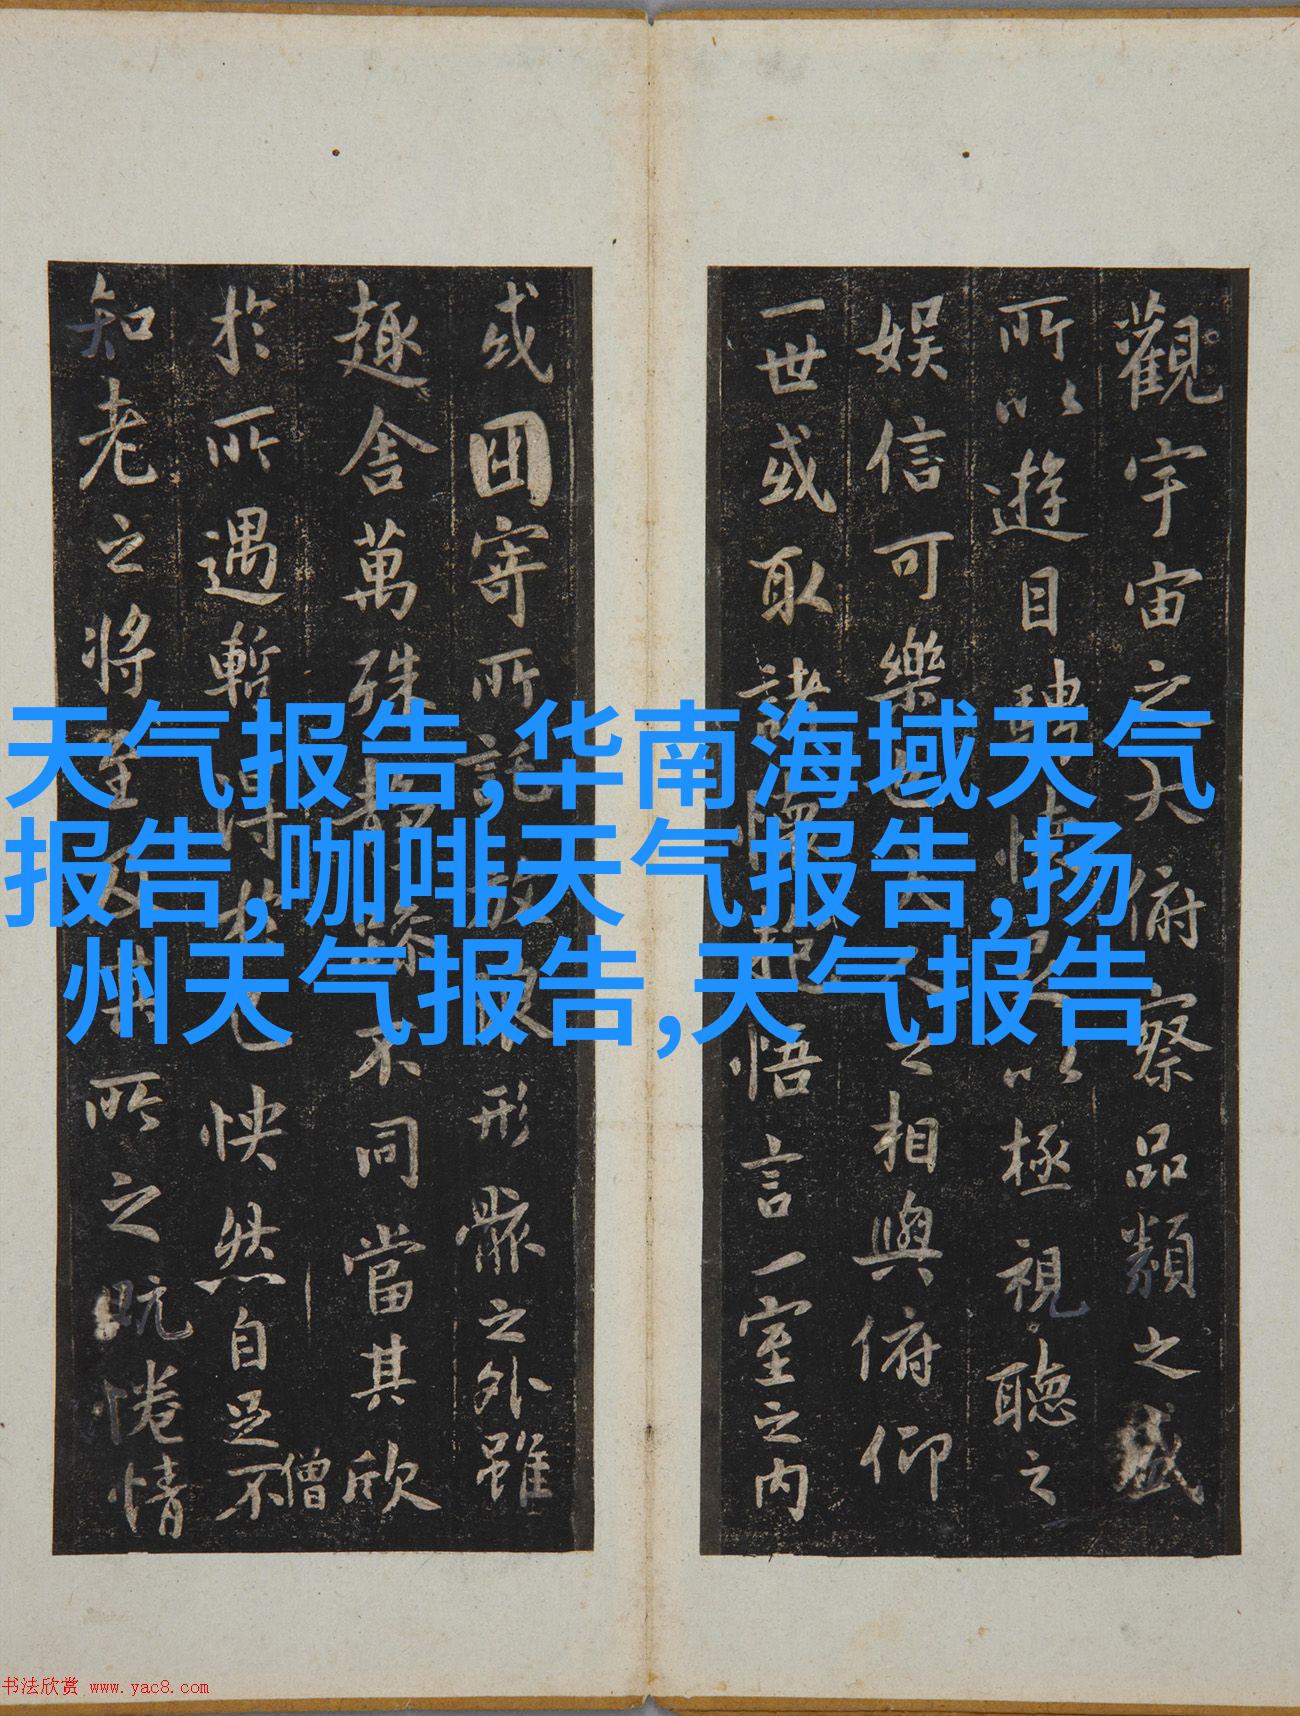 觀宇宙之大俯察品類之盛
所以遊目騁懷足以極視聽之
娛信可樂也夫人之相與俯仰
一世或取諸懷抱悟言一室之內
或因寄所託放浪形骸之外雖
趣舍萬殊靜躁不同當其欣
於所遇暫得於己快然自足不
僧
知老之將至及其所之既惓情
天气报告,华南海域天气
报告,咖啡天气报告,扬
州天气报告,天气报告
书法欣赏 www.yac8.com